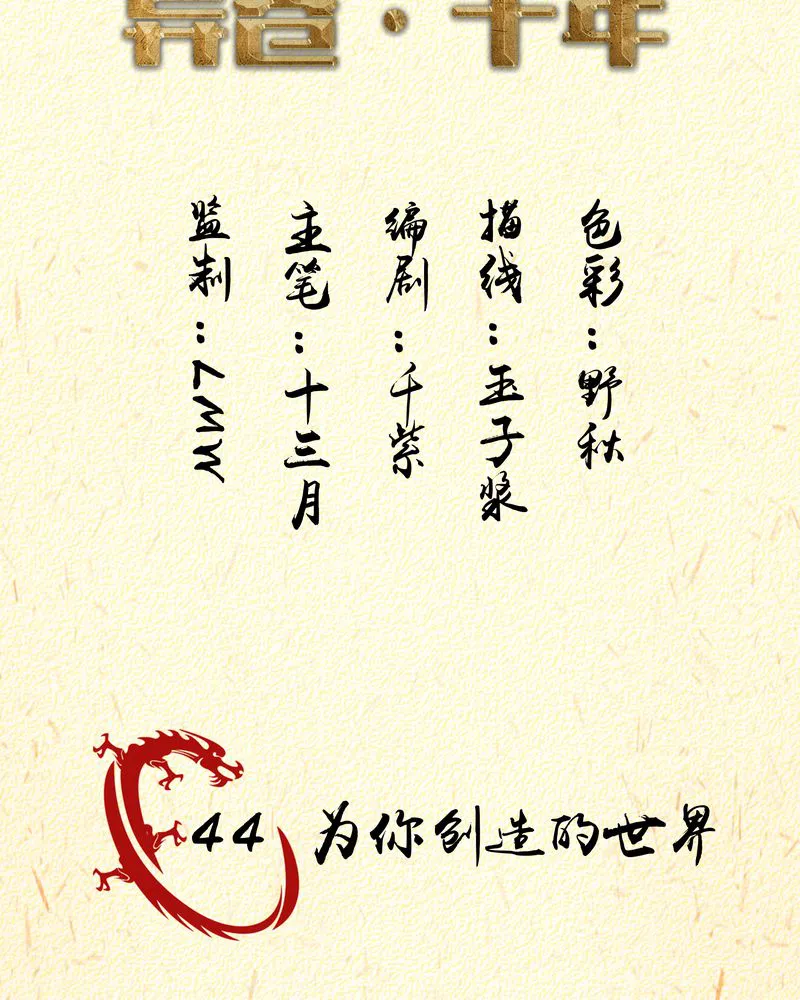 监制:MW7
主笔:十三月
编剧:千紫
描线:玉子浆
色彩:野秋
44 为你创造的世界